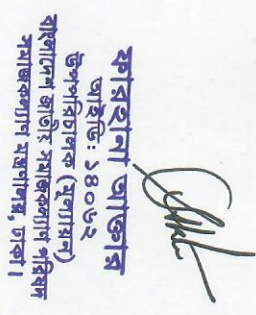 ফারহানা আক্তার
আইডি: ১৪০৬২
উপপরিচালক (মূল্যায়ন)
বাংলাদেশ জাতীয় সমাজকল্যাণ পরিষদ
সমাজকল্যাণ মন্ত্রণালয়, ঢাকা।